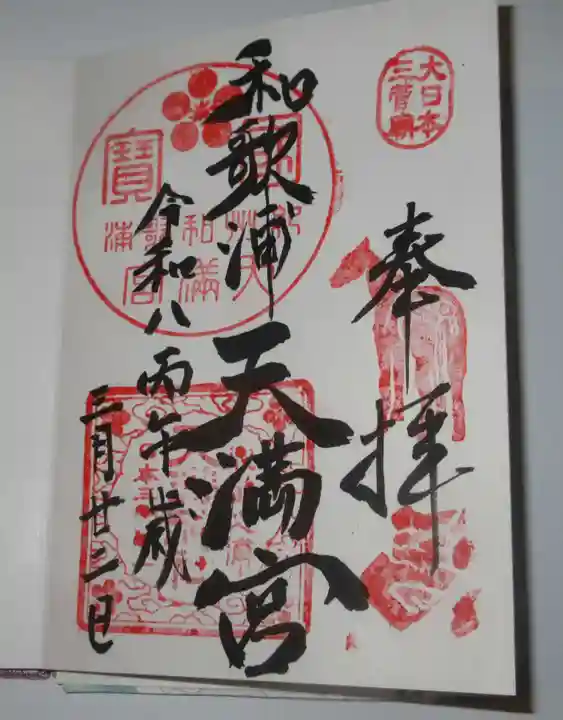 大日本
三菅廟
奉拝
和歌浦天満宮
令和八丙午歳
三月廿二日
寶